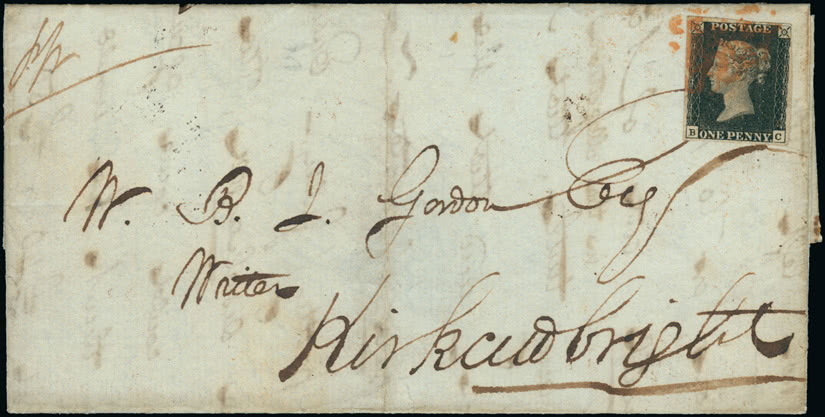 POSTAGE
B C
ONE PENNY
W. B. J. Gordon Esq
Writer
Kirkcudbright